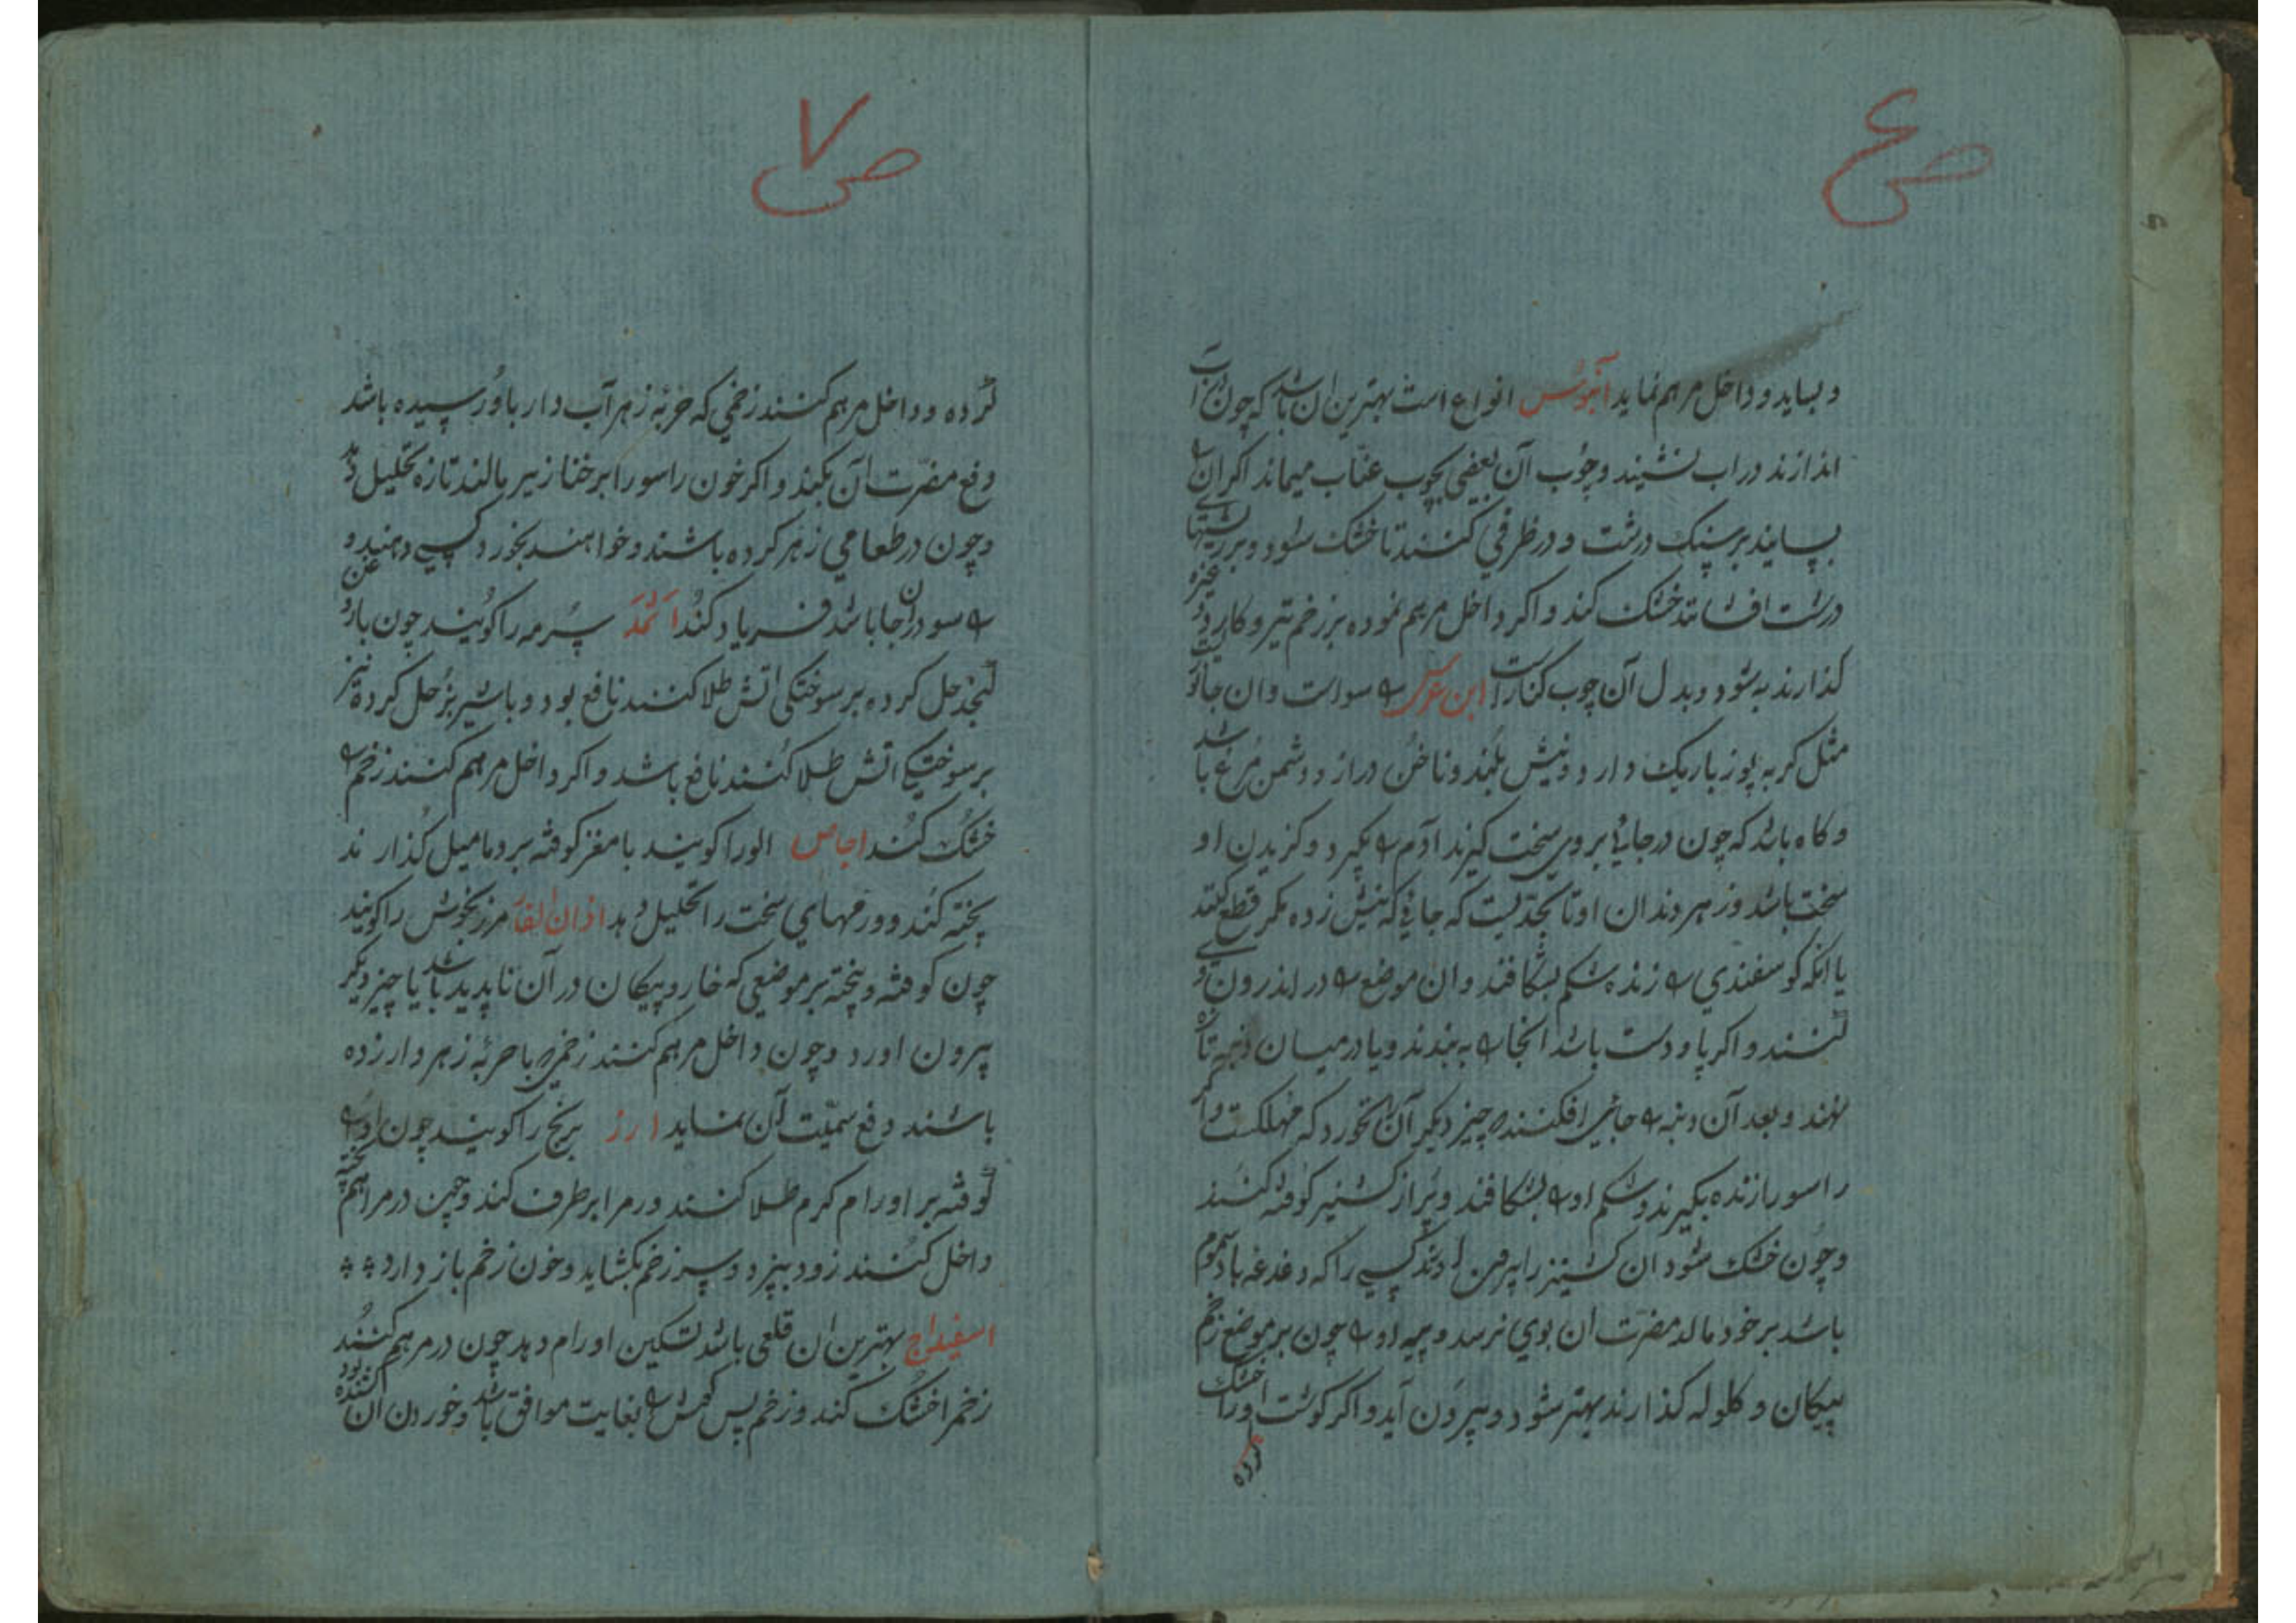 ص ۶
و بساید و داخل مرهم نماید آبنوس انواع است بهترین ان باشد که چون ان آب
اندازند در اب نشیند و چوب آن بعضی بچوب عناب میماند اکر ان را
بسایند بر سنک درشت و در ظرفی کنند تا خشک شود و بر ریشها
درشت افشانند خشک کند و اکر داخل مرهم نموده بر زخم تیر و کارد و غیره
کذارند به شود و بدل آن چوب کنار است ابن عرس راسو است و ان جانوریست
مثل کربه پوز باریک دارد و نیش بلند و ناخن دراز و دشمن مرغ باشد
و کاه باشد که چون در جایی بروی سخت کیرند آدم را بکیرد و کزیدن او
سخت باشد و زهر دندان او تا بحدیست که جایی که نیش زده مکر قطع کنند
یا انکه کوسفندی را زنده شکم بشکافند و ان موضع را در اندرون وی
کنند و اکر پا و دست باشد انجا را به بندند و یا در میان دنبه تازه
نهند و بعد آن دنبه را جایی افکنند که چیز دیکر آن نخورد که مهلکست و اکر
راسو را زنده بکیرند و شکم او را بشکافند و پر از کشنیز کوفته کنند
و چون خشک شود ان کشنیز را بیرون کسی را که دغدغه باد سموم
باشد بر خود مالد مضرت ان بوی نرسد و پیه او را چون بر موضع زخم
پیکان و کلوله کذارند بهتر شود و بیرون آید و اکر کوشت او را خشک
کرده
ص ۷
کرده و داخل مرهم کنند زخمی که حربهٔ زهر آب دار باو رسیده باشد
دفع مضرت آن بکند و اکر خون راسو را بر خنازیر مالند تازه تحلیل دهد
و چون در طعامی زهر کرده باشند و خواهند بخورد کسی دهند و
راسو در ان جا باشد فریاد کند اثمد سرمه را کویند چون با روغن
کنجد حل کرده بر سوختکی اتش طلا کنند نافع بود و با شیر بز حل کرده نیز
بر سوختکی اتش طلا کنند نافع باشد و اکر داخل مرهم کنند زخم را
خشک کند اجاص الو را کویند با مغز کوفته بر دمامیل کذارند
پخته کند و ورمهای سخت را تحلیل دهد اذان الفار مرزنجوش را کویند
چون کوفته و پخته بر موضعی که خار و پیکان در آن ناپدید باشد یا چیز دیکر
بیرون اورد و چون داخل مرهم کنند زخمی که با حربهٔ زهر دار زده
باشند دفع سمیت آن نماید ارز برنج را کویند چون او را پخته
کوفته بر اورام کرم طلا کنند ورم را برطرف کند و چون در مراهم
داخل کنند زود بپزد و سر زخم بکشاید و خون زخم باز دارد
اسفیداج بهترین ان قلعی باشد تسکین اورام دهد چون در مرهم کنند
زخم را خشک کند و زخم پس کهنش را بغایت موافق باشد و خوردن ان کشنده بود